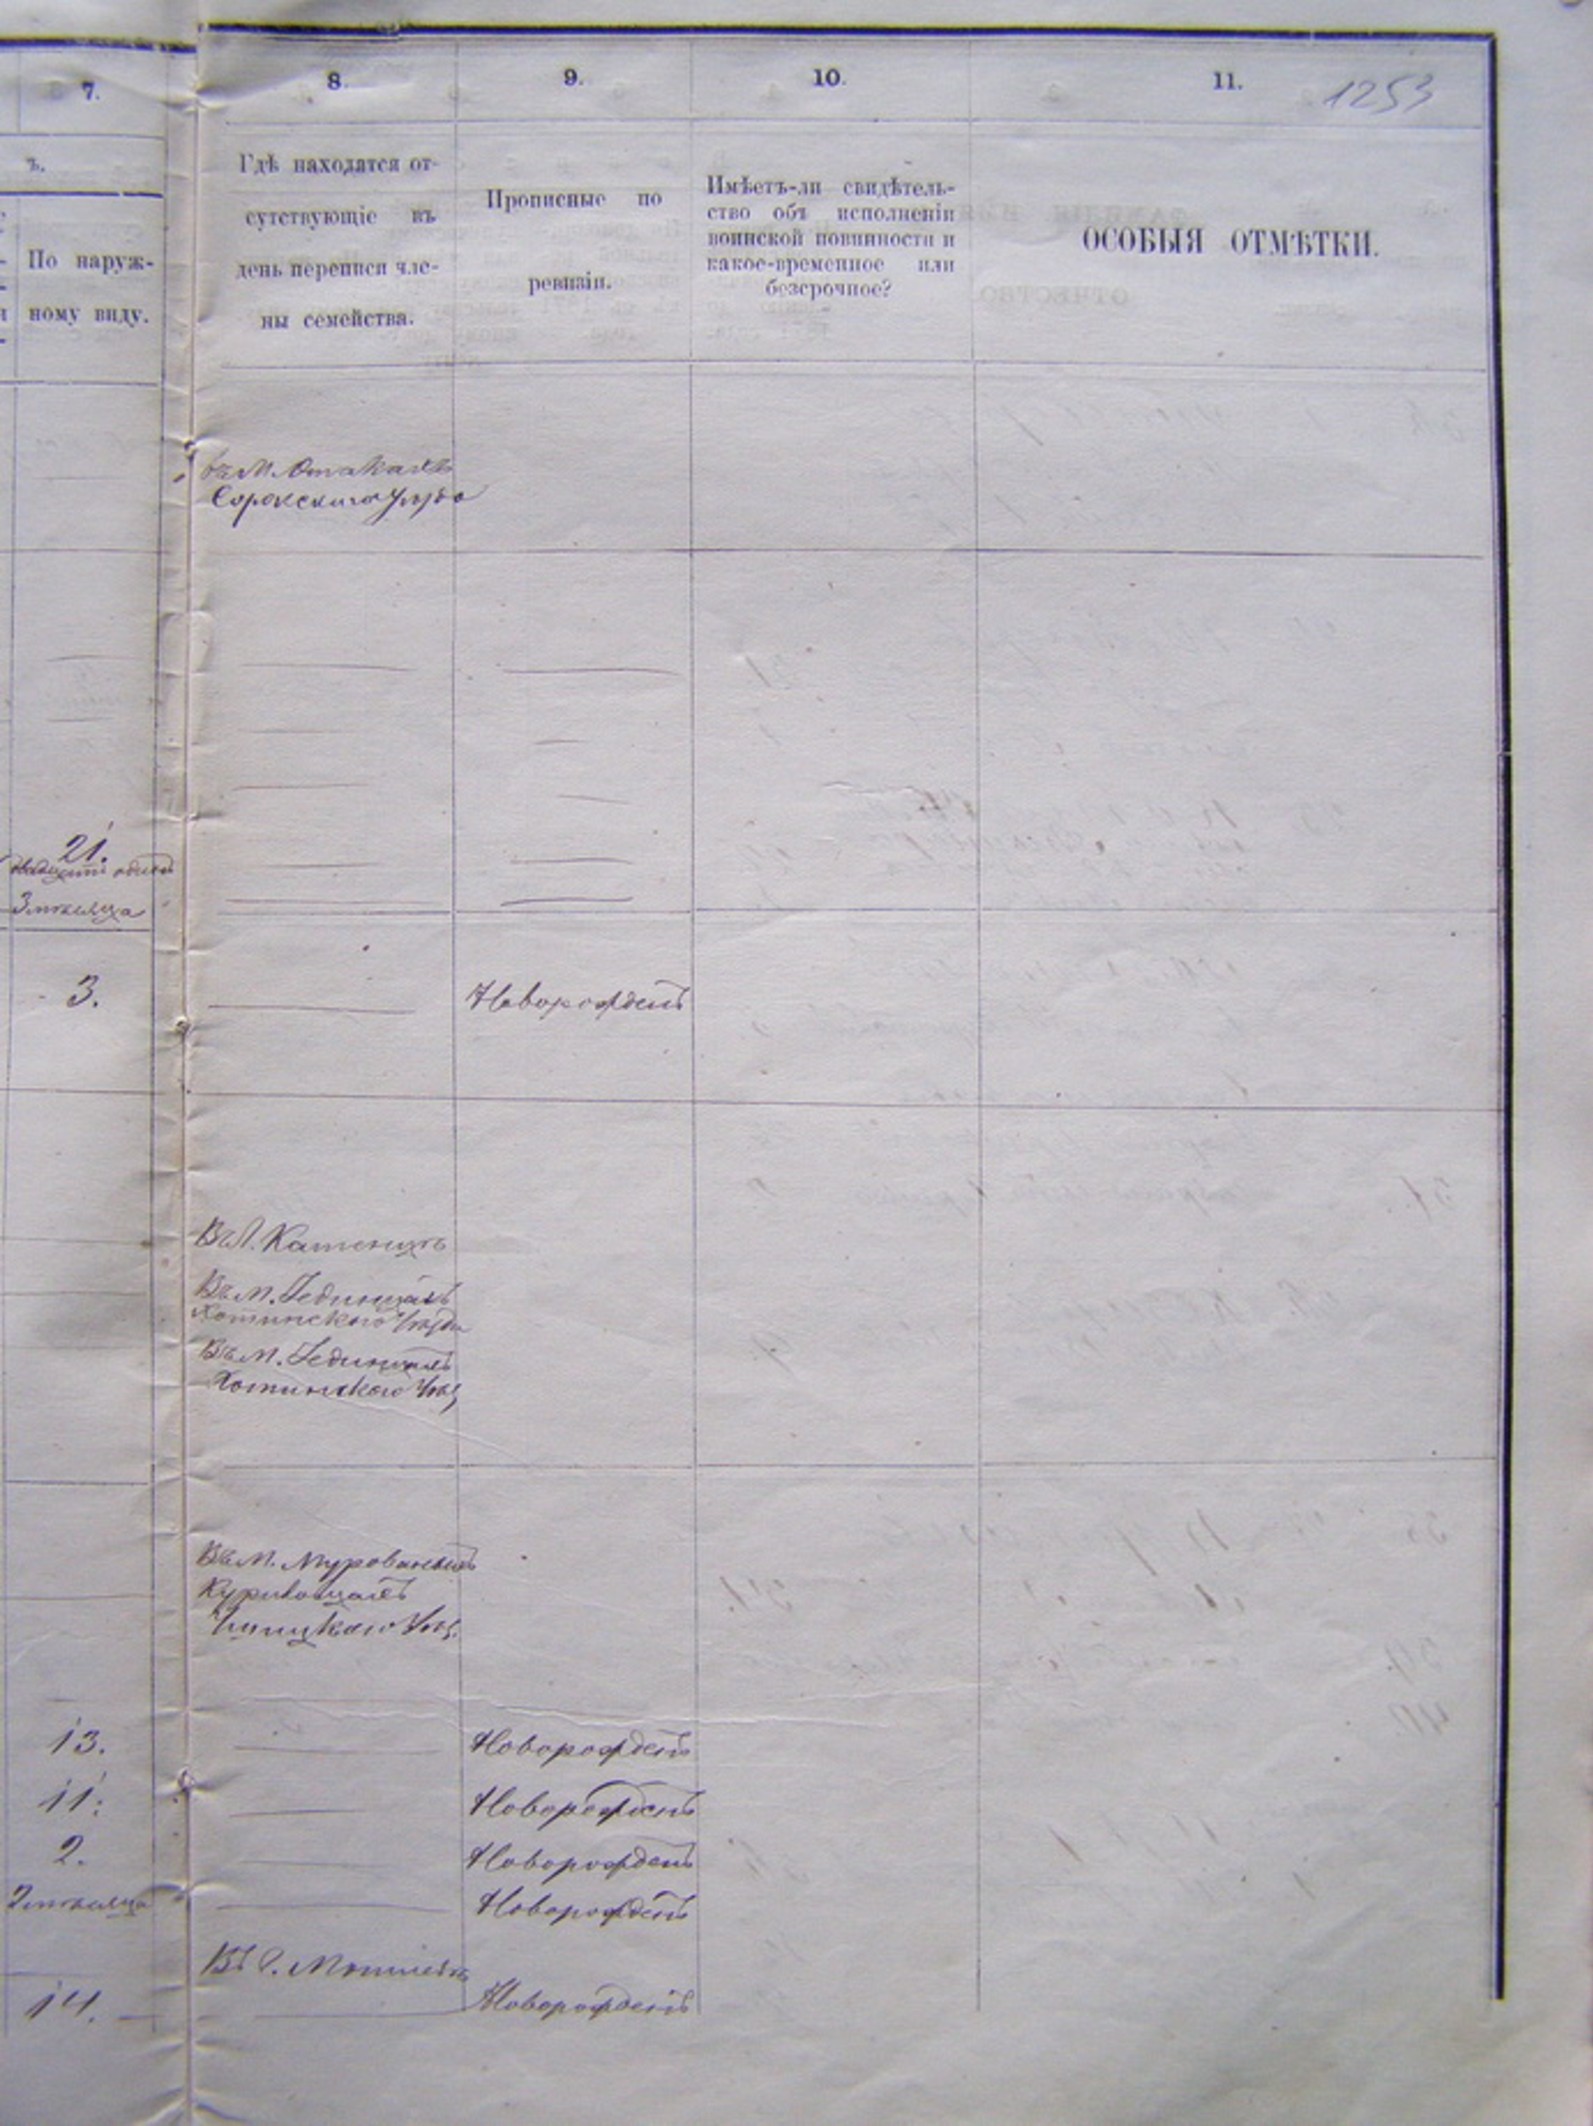 7.
8.
9.
10.
11.
1253
ъ.
По наруж-
ному виду.
Гдѣ находятся от-
сутствующіе къ
день переписи чле-
ны семейства.
Прописные по
ревизіи.
Имѣетъ-ли свидѣтель-
ство объ исполненіи
воинской повинности и
какое-временное или
безсрочное?
ОСОБЫЯ ОТМѢТКИ.
въ М. Отакахъ
Сорокскаго Уѣзда
21.
двадцати одного
3 мѣсяца
3.
Новорожденъ
Въ М. Единцахъ
Хотинскаго Уѣзда
Въ М. Единцахъ
Хотинскаго Уѣз
Въ М. Мурованыхъ
Куриловцахъ
Ушицкаго Уѣз.
13.
Новорожденъ
11.
Новорожденъ
2.
Новорожденъ
мѣсяца
Новорожденъ
14.
Новорожденъ